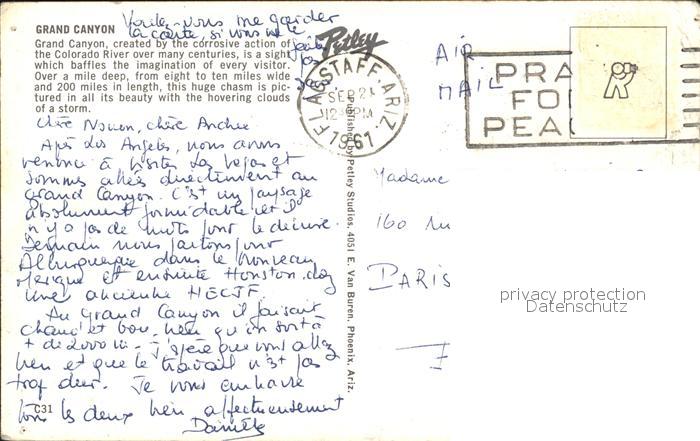 Voulez-vous me garder
la carte, si vous ne
GRAND CANYON
Grand Canyon, created by the corrosive action of
the Colorado River over many centuries, is a sight
which baffles the imagination of every visitor.
Over a mile deep, from eight to ten miles wide
and 200 miles in length, this huge chasm is pic-
tured in all its beauty with the hovering clouds
of a storm.
Chère Nouon, chère Andrée
Après Los Angeles, nous avons
renoncé à visiter Las Vegas et
sommes allés directement au
Grand Canyon. C'est un paysage
absolument formidable et il
n'y a pas de mots pour le décrire.
Demain nous partons pour
Albuquerque dans le Nouveau
Mexique et ensuite Houston chez
une ancienne HECJF.
Au Grand Canyon il faisait
chaud et bon, bien qu'on soit à
+ de 2000 m. J'espère que vous allez
bien et que le travail n'est pas
trop dur. Je vous embrasse
tous les deux bien affectueusement
Danièle
C31
Petley
FLAGSTAFF, ARIZ.
SEP 21
PM
1967
PRA
FO
PEA
Published by Petley Studios, 4051 E. Van Buren, Phoenix, Ariz.
AIR
MAIL
Madame
160 ru
PARIS
F
privacy protection
Datenschutz